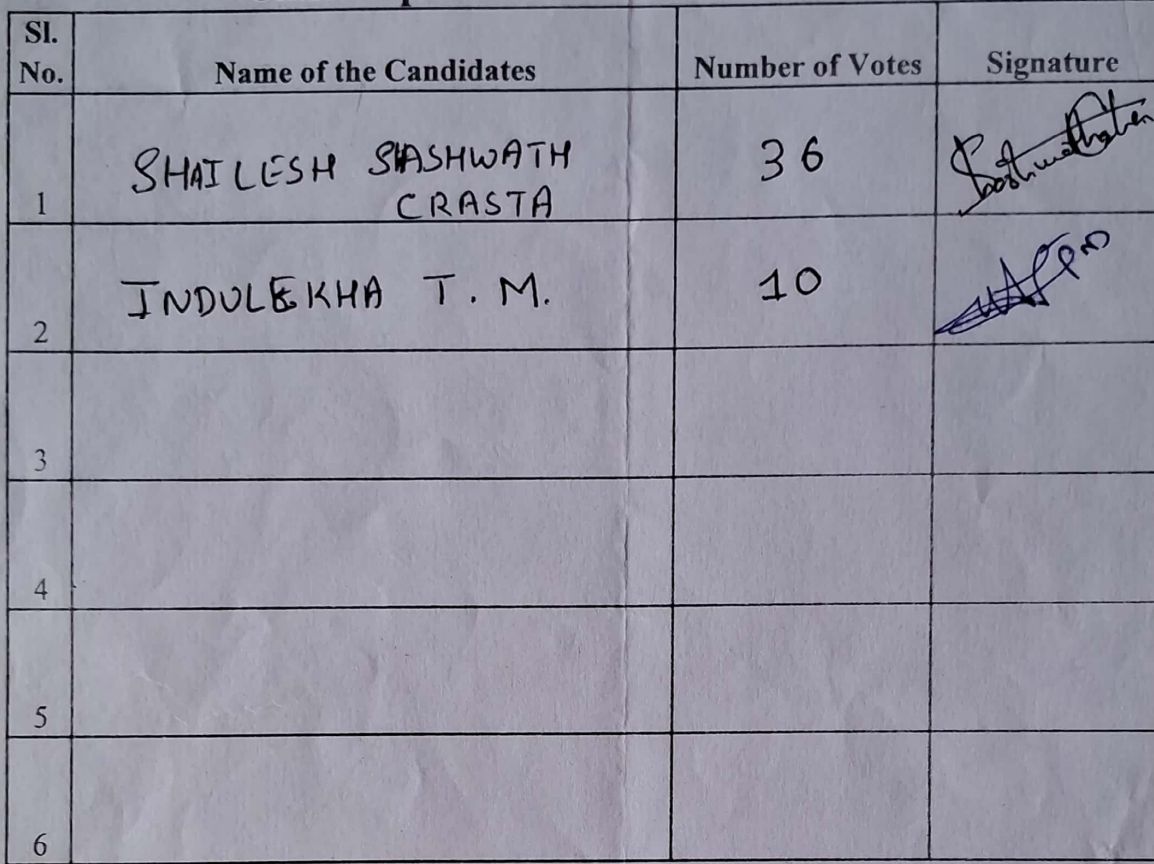 Sl.
No. Name of the Candidates Number of Votes Signature
1 SHAILESH SHASHWATH 36
CRASTA
2 INDULEKHA T. M. 10
3
4
5
6